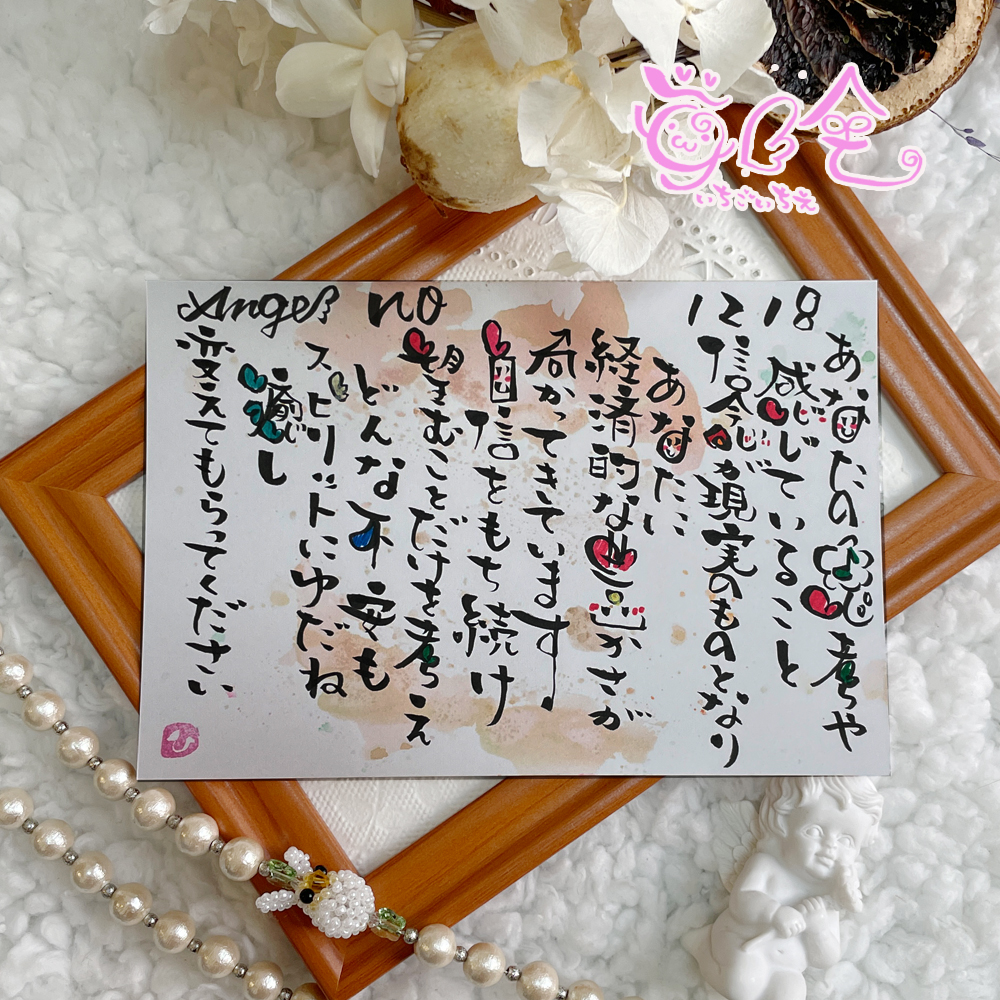 Angel NO 1218
あなたの思考や
感じていること
信念が現実のものとなり
あなたに
経済的な豊かさが
向かってきています
自信をもち続け
望むことだけを考え
どんな不安も
スピリットにゆだね
癒し
変えてもらってください
いちごいちえ